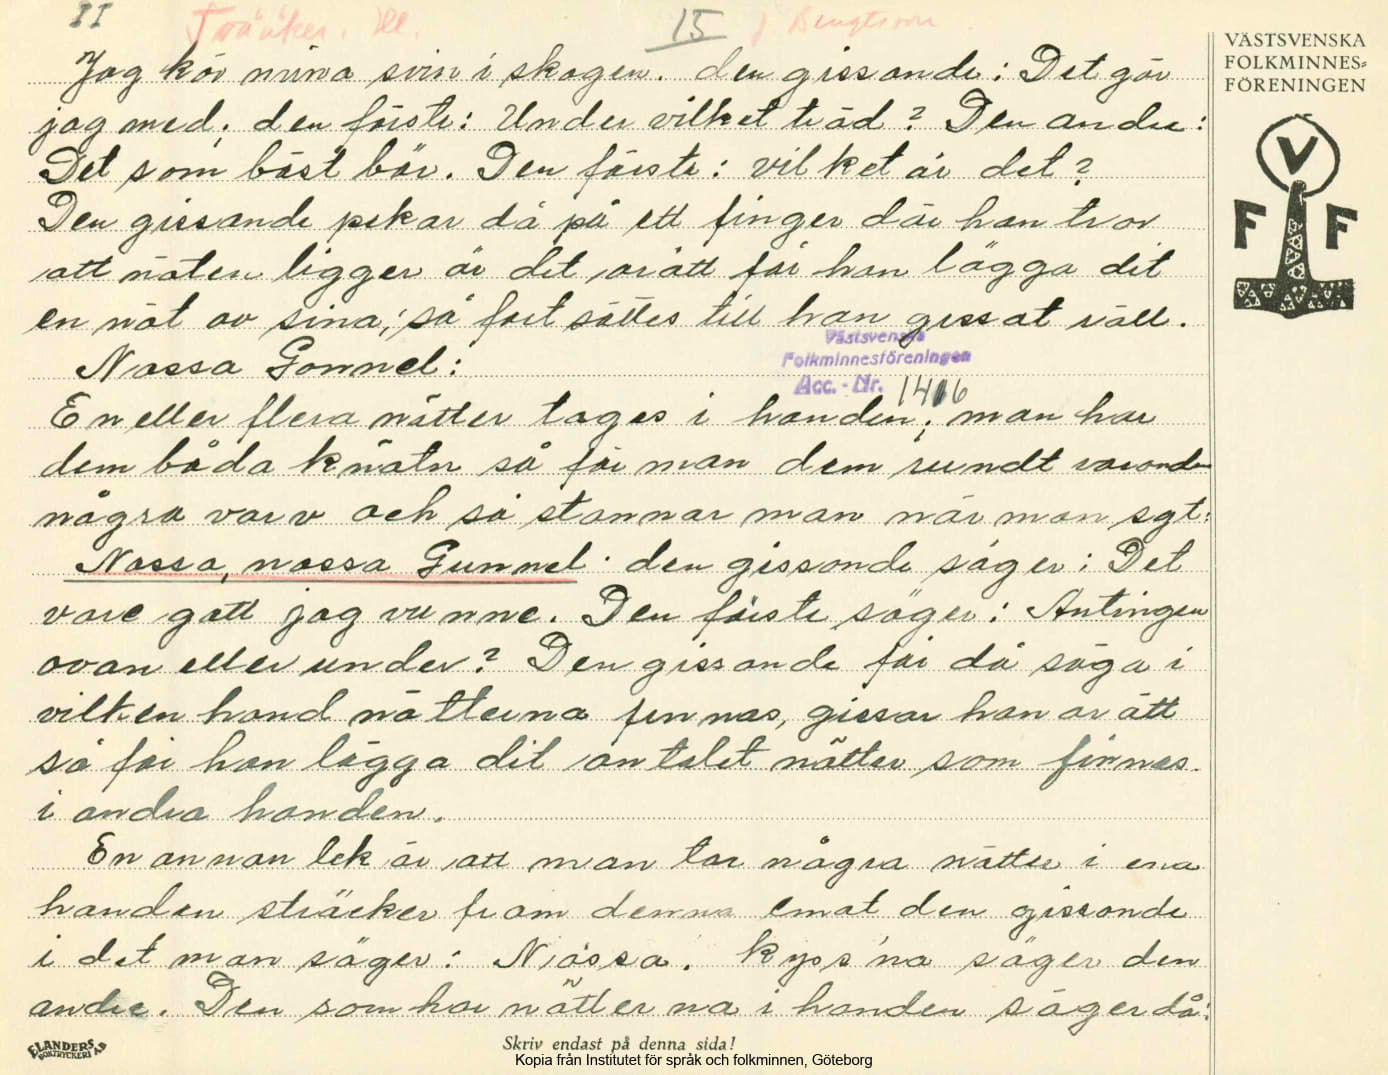 II Tvååker. Hl. 15 J Bengtsson.
VÄSTSVENSKA
FOLKMINNES-
FÖRENINGEN
V
F F
Jag kör mina svin i skogen. den gissande: Det gör
jag med. den förste: Under vilket träd? Den andre:
Det som bäst bär. Den förste: vilket är det?
Den gissande pekar då på ett finger där han tror
att nöten ligger är det orätt får han lägga dit
en nöt av sina; så fortsättes till han gissat rätt.
Västsvenska
Folkminnesföreningen
Acc. - Nr. 1416
Nassa Gonnel:
En eller flera nötter tages i handen; man har
dem båda knäten så för man dem rundt varandra
några varv och så stannar man när man sgt:
Nassa, nassa Gunnel. den gissande säger: Det
vare gott jag vunne. Den förste säger: Antingen
ovan eller under? Den gissande får då säga i
vilken hand nötterna finnas, gissar han orätt
så får han lägga dit antalet nötter som finnas
i andra handen.
En annan lek är att man tar några nötter i ena
handen sträcker fram denna emot den gissande
i det man säger: Nössa. kyss'na säger den
andre. Den som har nötterna i handen säger då:
ELANDERS
BOKTRYCKERI AB
Skriv endast på denna sida!
Kopia från Institutet för språk och folkminnen, Göteborg